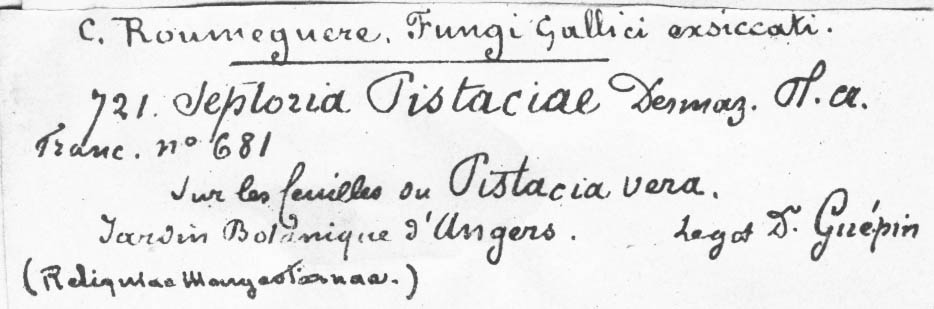 C. Roumeguere. Fungi Gallici exsiccati.
721. Septoria Pistaciae Desmaz. Pl. cr.
Franc. no 681
Sur les feuilles du Pistacia vera.
Jardin Botanique d'Angers. Legit Dr. Guépin
(Reliquiae Mougeotianae.)